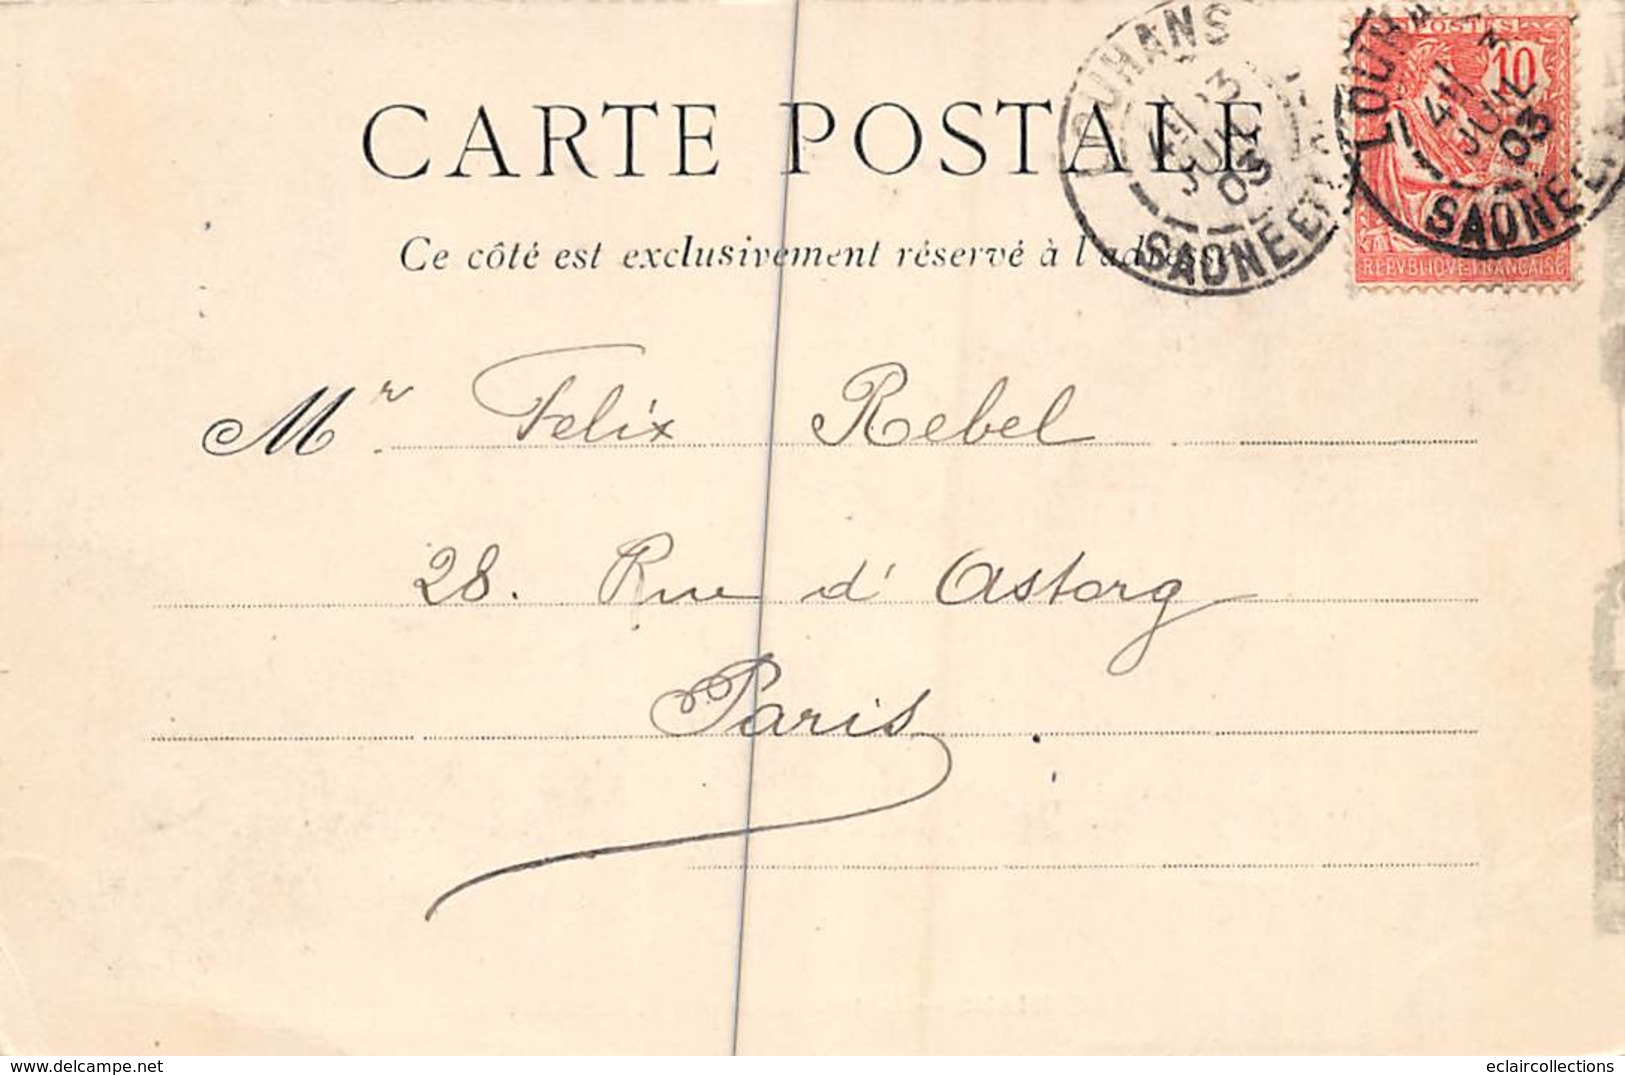 CARTE POSTALE
Ce côté est exclusivement réservé à l'adresse
LOUHANS
JUIL
03
SAONE ET
POSTES
10
LOUH
4
JUIL
03
SAONE ET
REPVBLIQVE FRANÇAISE
Mr Felix Rebel
28. Rue d'Astorg
Paris
www.delcampe.net
eclaircollections